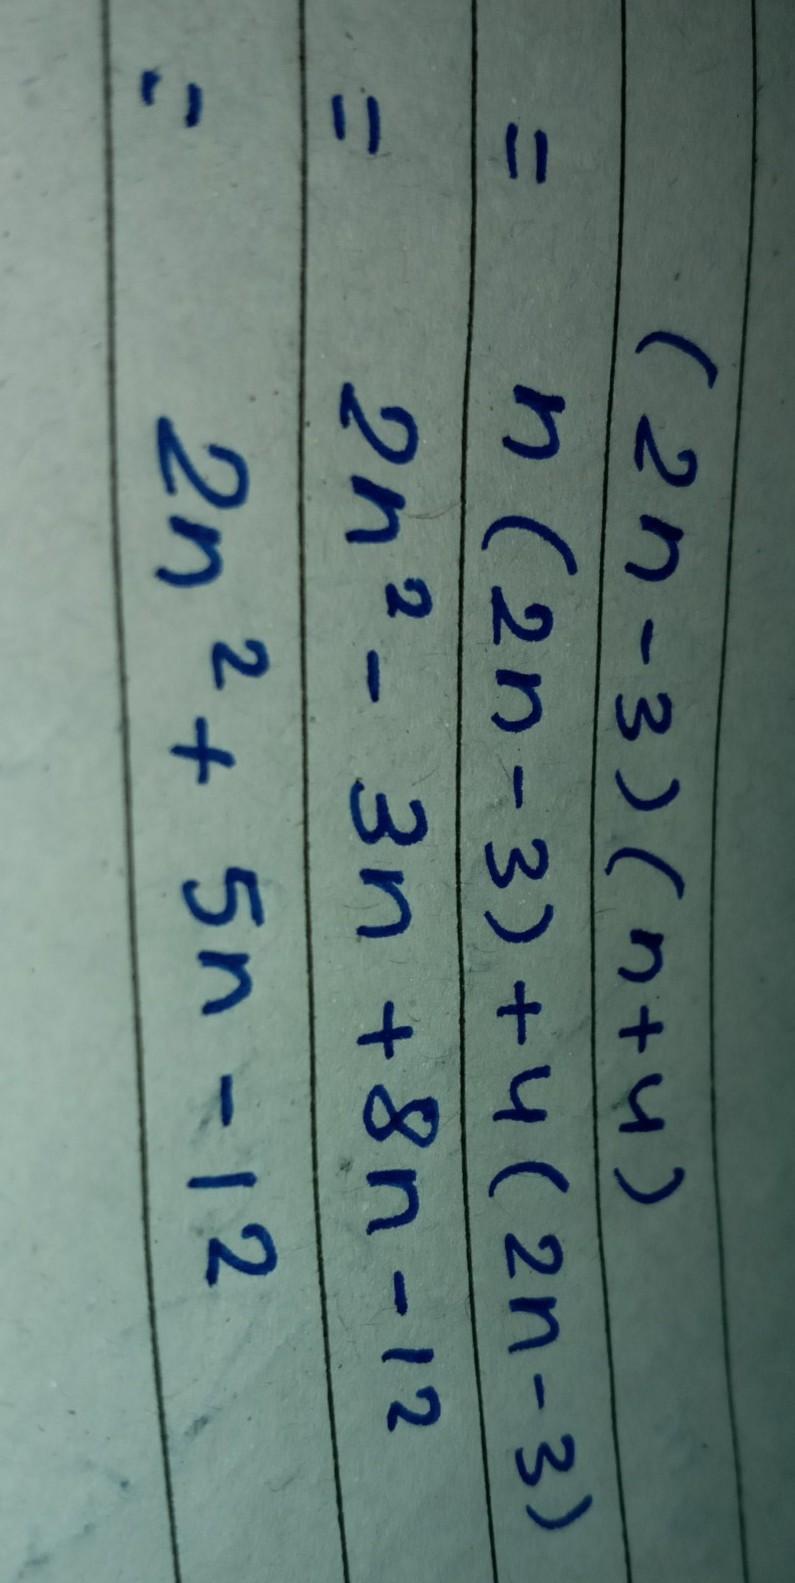 (2n-3)(n+4)
= n(2n-3)+4(2n-3)
= 2n² - 3n +8n -12
= 2n² + 5n -12